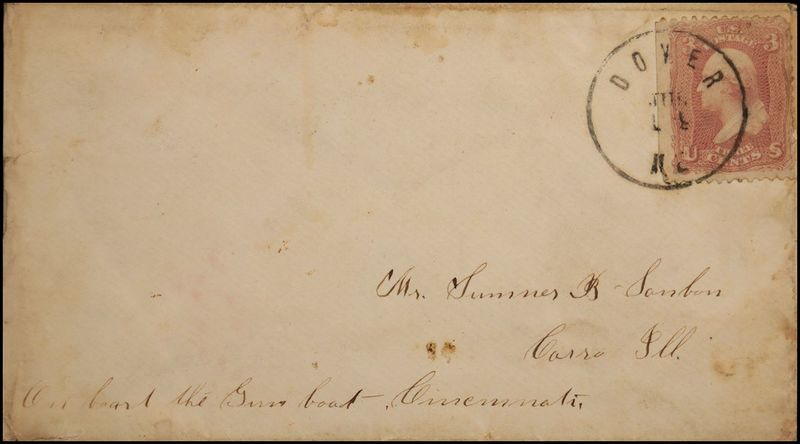 DOVER
U.S. POSTAGE
3 3
U S
THREE CENTS
Mr. Sumner B Sanbon
Carro Ill.
On boart the Gun boat Cincinnati,